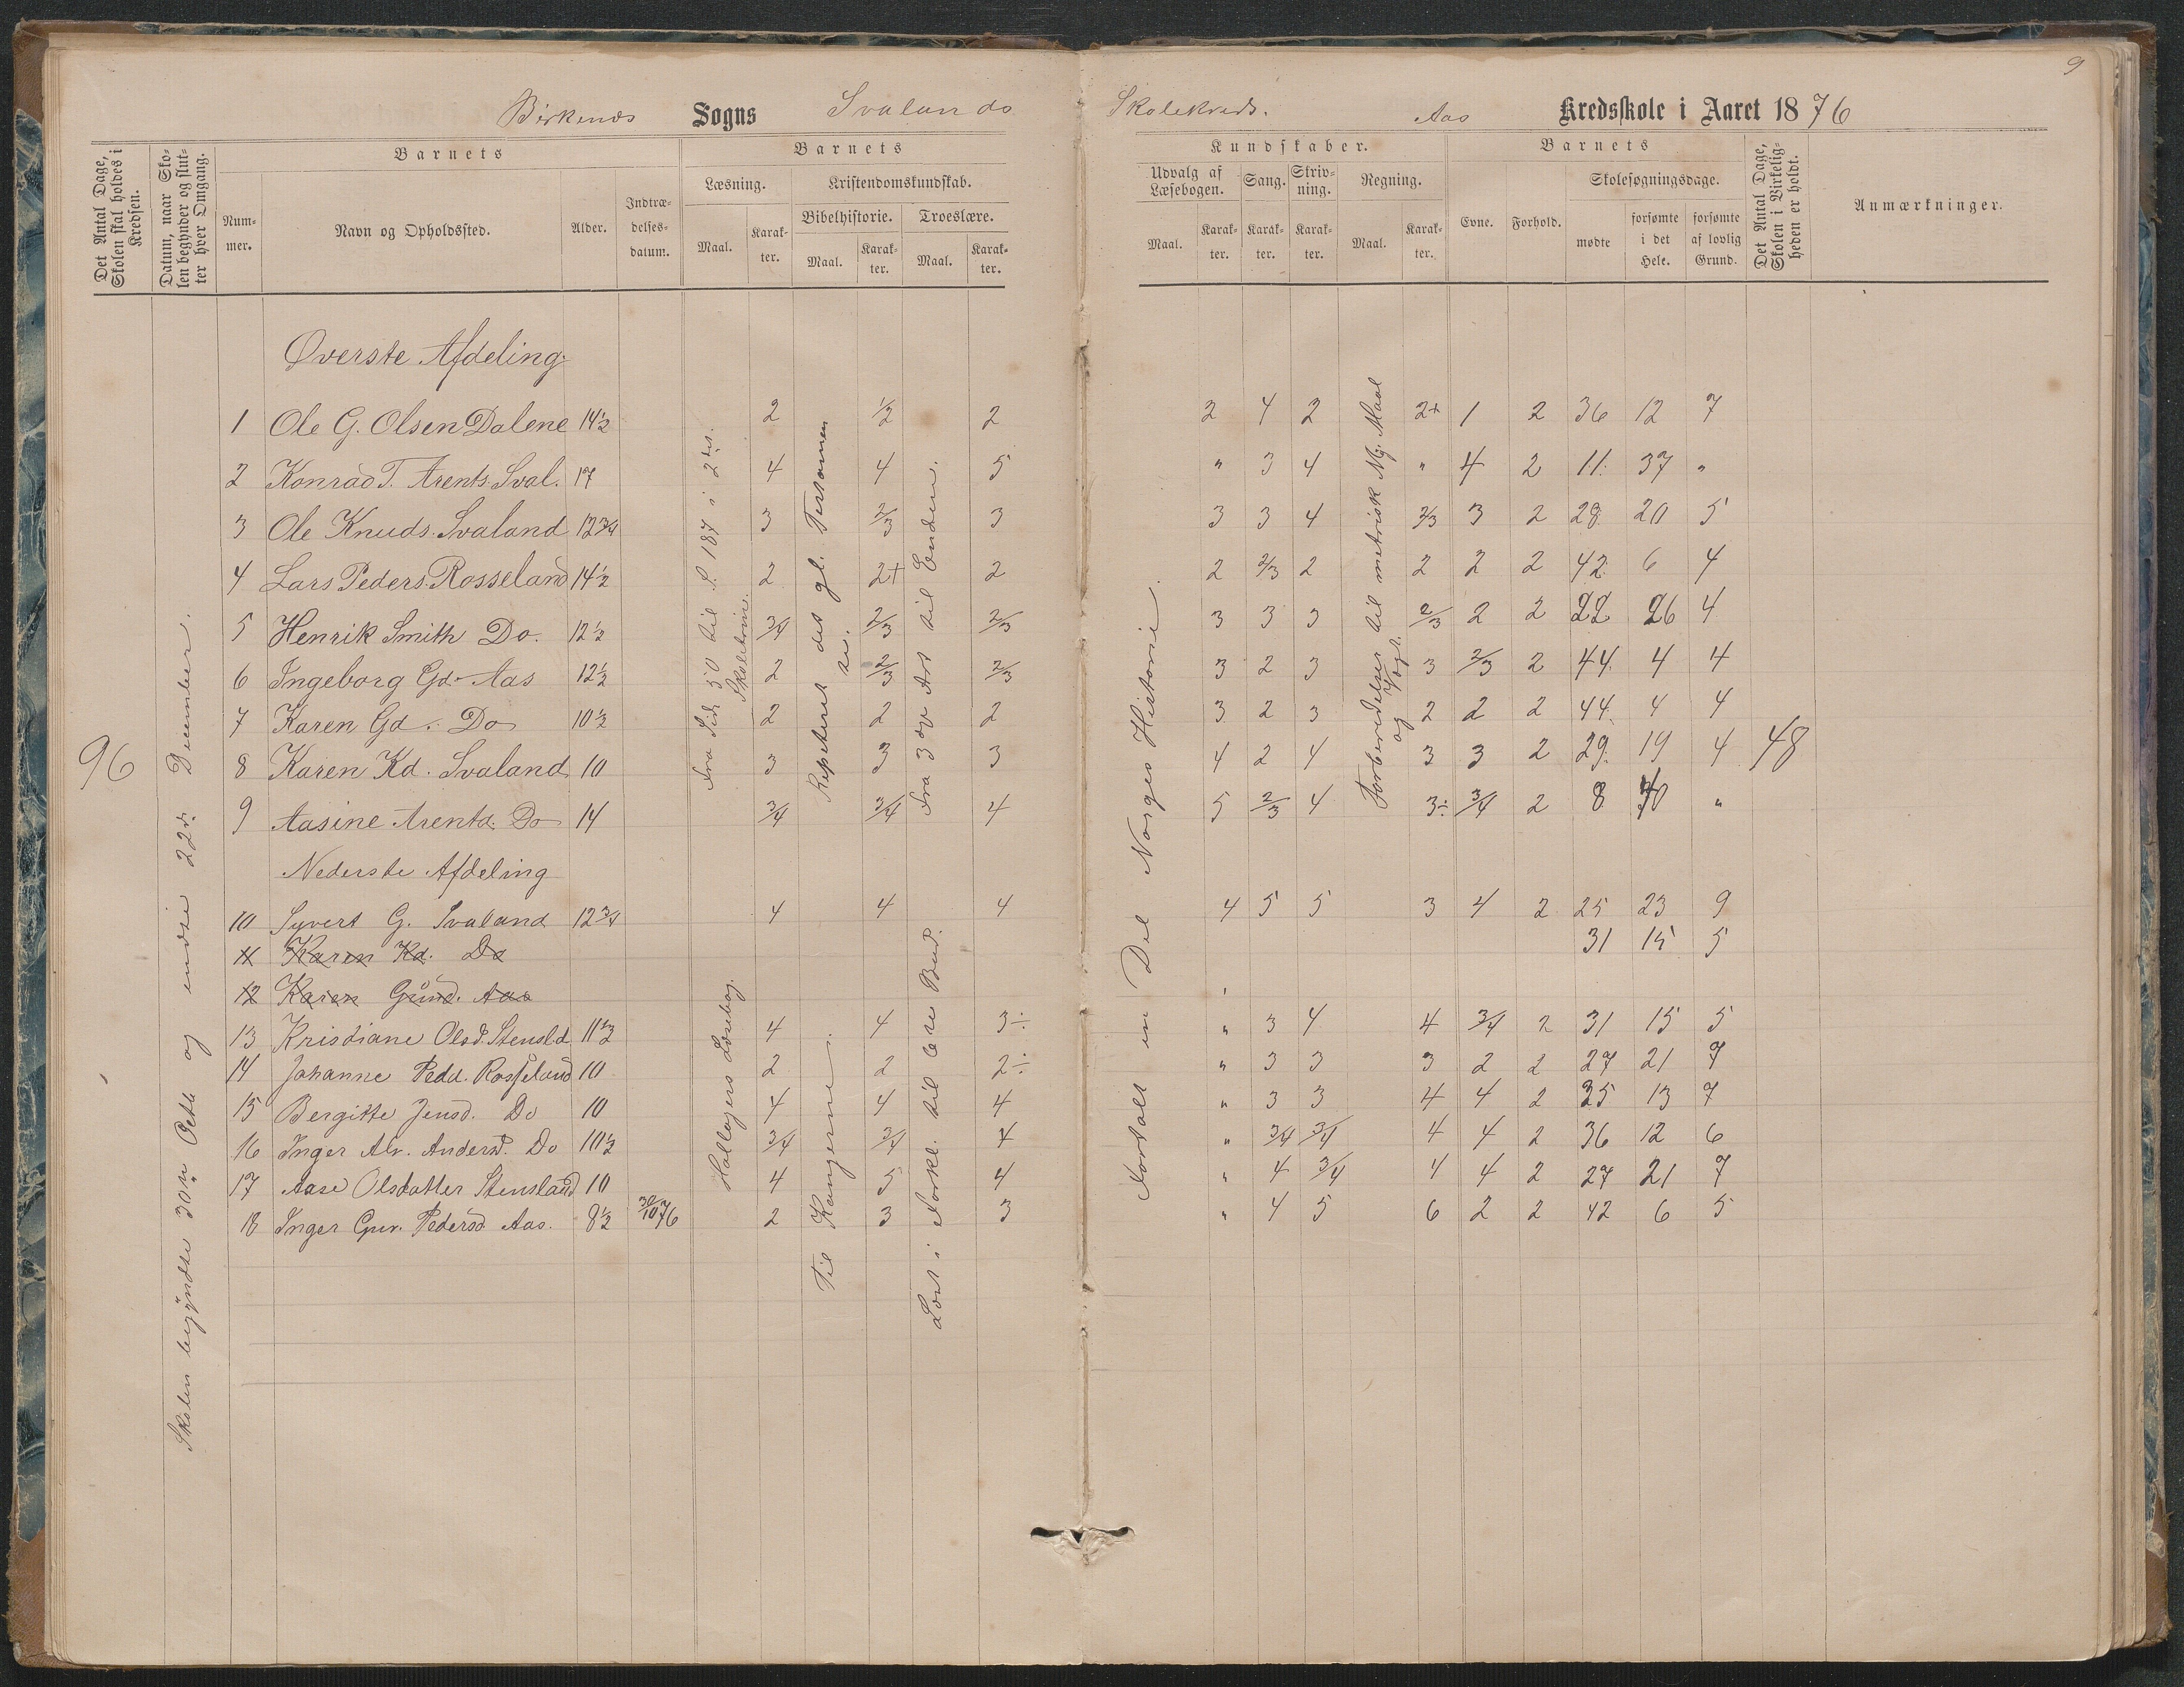 9
Birkenæs Sogns Svalands Skolekreds. Aas Kredsskole i Aaret 1876
Det Antal Dage, Skolen skal holdes i Kredsen.
Datum, naar Skolen begynder og slutter hver Omgang.
Barnets
Nummer.
Navn og Opholdssted.
Alder.
Indtrædelsesdatum.
Barnets
Læsning.
Maal.
Karakter.
Kristendomskundskab.
Bibelhistorie.
Maal.
Karakter.
Troeslære.
Maal.
Karakter.
Kundskaber.
Udvalg af Læsebogen.
Maal.
Karakter.
Sang.
Karakter.
Skrivning.
Karakter.
Regning.
Maal.
Karakter.
Barnets
Evne.
Forhold.
Skolesøgningsdage.
mødte
forsømte i det Hele.
forsømte af lovlig Grund.
Det Antal Dage, Skolen i Virkeligheden er holdt.
Anmærkninger.
96
Skolen begyndte 30te Octb og endte 22de December.
Øverste Afdeling
Fra Sid. 50 til S. 187 i 2det Skoletrin.
Repeteret det gl. Testamente.
Fra 3die Art til Enden.
Fortalt en Del Norges Historie.
Forberedelser til metrisk Maal og Vægt.
1 Ole G. Olsen Dalene 14½ 2 ½ 2 2 4 2 2+ 1 2 36 12 7
2 Konrad T. Arents. Sval. 17 4 4 5 " 3 4 " 4 2 11 37 "
3 Ole Knuds. Svaland 12¾ 3 2/3 3 3 3 4 2/3 3 2 28 20 5
4 Lars Peders. Rosseland 14½ 2 2+ 2 2 2/3 2 2 2 2 42 6 4
5 Henrik Smith Do. 12½ 3/4 2/3 2/3 3 3 3 2/3 2 2 22 26 4
6 Ingeborg Gd. Aas 12½ 2 2/3 2/3 3 2 3 3 2/3 2 44 4 4
7 Karen Gd. Do 10½ 2 2 2 3 2 3 2 2 2 44 4 4
8 Karen Kd. Svaland 10 3 3 3 4 2 4 3 3 2 29 19 4 48
9 Aasine Arentd. Do 14 3/4 3/4 4 5 2/3 4 3÷ 3/4 2 8 40 "
Nederste Afdeling
Læsebog.
Til Kongerne.
Læst i Forkl. til 6te Bud.
10 Syvert G. Svaland 12¾ 4 4 4 4 5 5 3 4 2 25 23 9
11 Karen Kd. Do 31 15 5
12 Karen Gund. Aas
13 Kristiane Olsd. Stensld 11½ 4 4 3÷ " 3 4 4 3/4 2 31 15 5
14 Johanne Pedd. Rosseland 10 2 2 2÷ " 3 3 3 2 2 27 21 7
15 Bergitte Jensd. Do 10 4 4 4 " 3 3 4 4 2 35 13 7
16 Inger Alv. Andersd. Do 10½ 3/4 3/4 4 " 3/4 3/4 4 4 2 36 12 6
17 Aase Olsdatter Stensland 10 4 5 4 " 4 3/4 4 4 2 27 21 7
18 Inger Gur. Pedersd Aas. 8½ 30/10 76 2 3 3 " 4 5 6 2 2 42 6 5